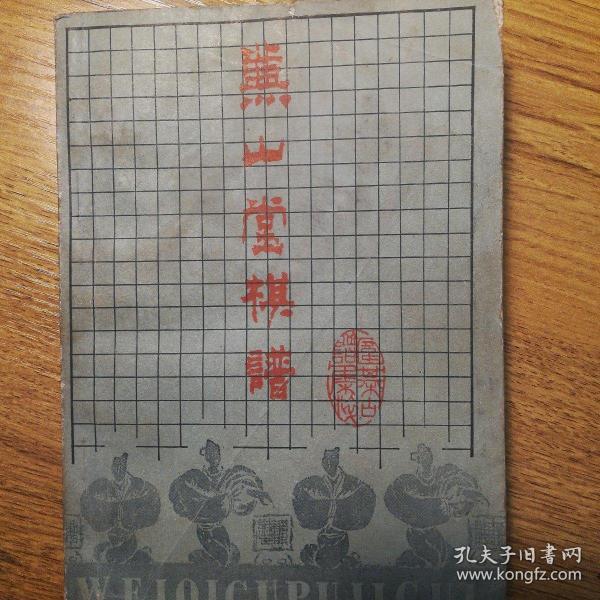 蕉山堂棋譜
WEIQIGUPUJICHE
孔夫子旧书网
www.kongfz.com